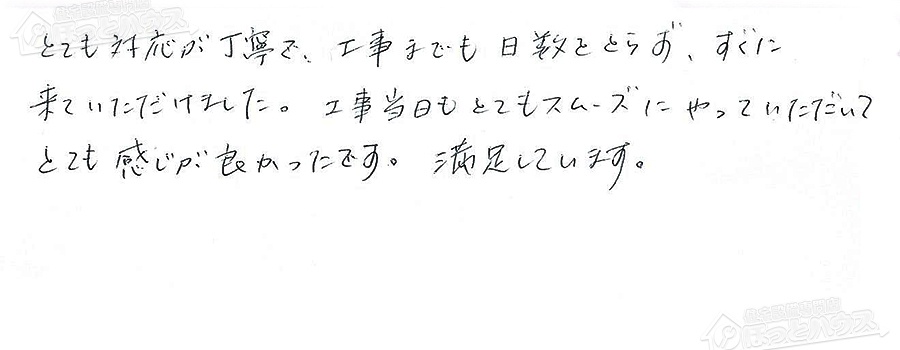 とても対応が丁寧で、工事までも日数をとらず、すぐに
来ていただけました。工事当日もとてもスムーズにやっていただいて
とても感じが良かったです。満足しています。
ほっとハウス